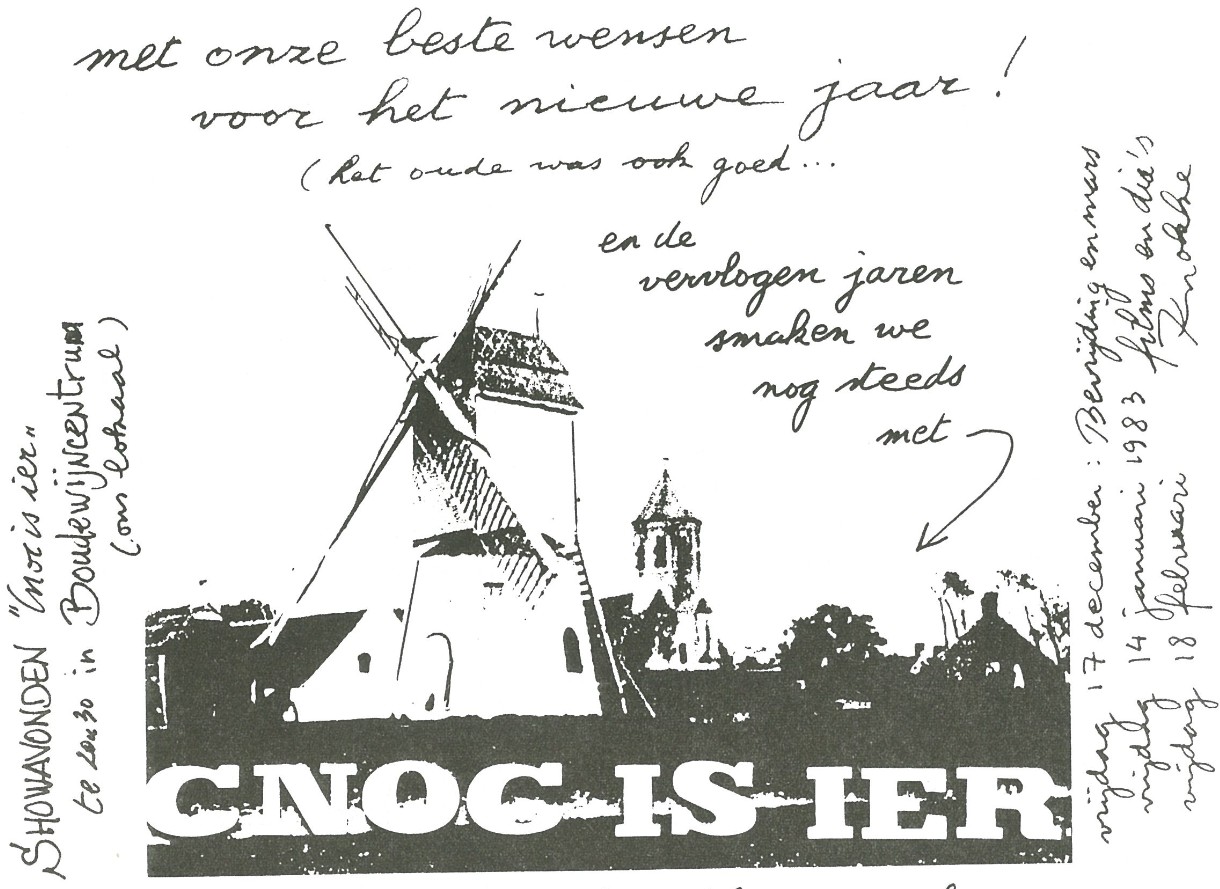 met onze beste wensen
voor het nieuwe jaar!
(het oude was ook goed...
en de
vervlogen jaren
smaken we
nog steeds
met
CNOC IS IER
SHOWAVONDEN "Cnoc is ier"
te 20u30 in Boudewijncentrum
(ons lokaal)
vrijdag 17 december: Bevrijding en mars
vrijdag 14 januari 1983 films en dia's
vrijdag 18 februari Knokke